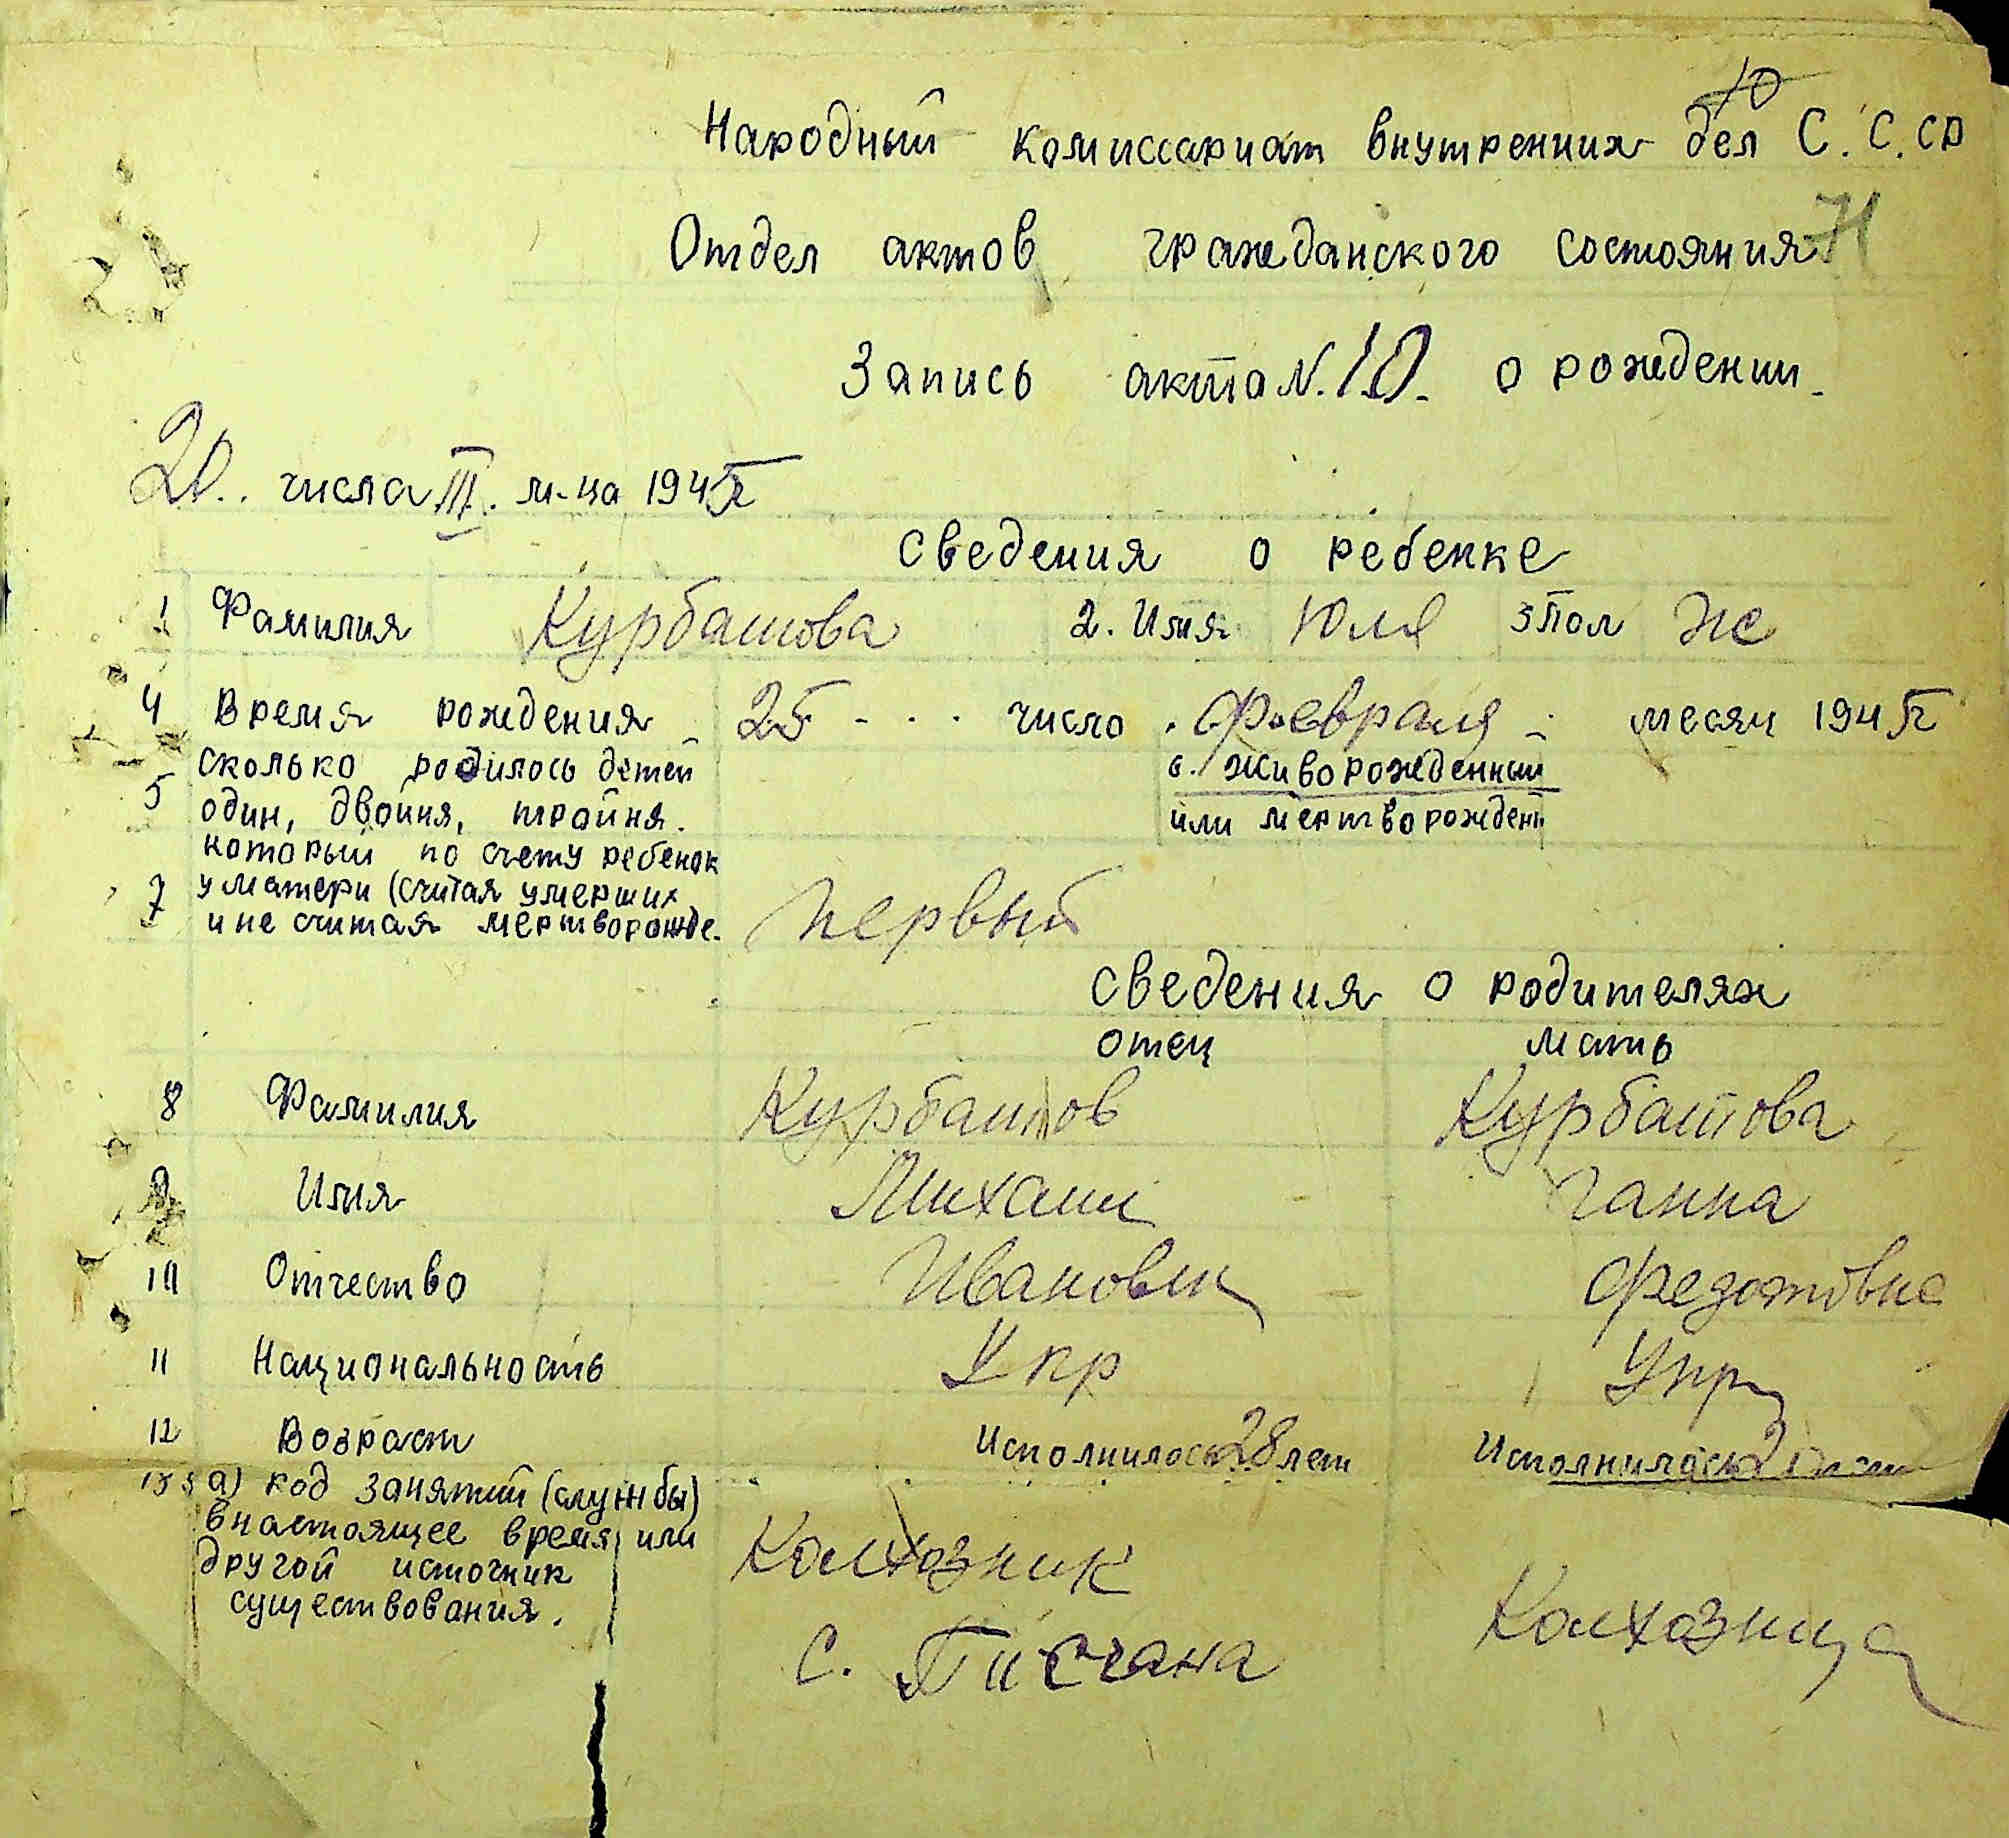 10
Народный комиссариат внутренних дел С.С.СР
Отдел актов гражданского состояния
Запись акта N. 10. о рождении.
20.. числа III. м-ца 1945г
Сведения о ребенке
1 Фамилия Курбатова 2. Имя Юля 3 Пол Же
4 Время рождения 25 - . . число . Февраля - месяц 1945г
5 сколько родилось детей один, двойня, тройня.
6. живорожденный
или мертворожден
7 который по счету ребенок
у матери (считая умерших
и не считая мертворожде. Первый
Сведения о родителях
отец мать
8 Фамилия Курбатов Курбатова
9 Имя Михаил Ганна
10 Отчество Иванович Федотовна
11 Национальность Укр Укр
12 Возраст Исполнилось 28 лет Исполнилось
13 а) код занятий (службы)
в настоящее время или
другой источник
существования.
Колхозник Колхозница
с. Писчана